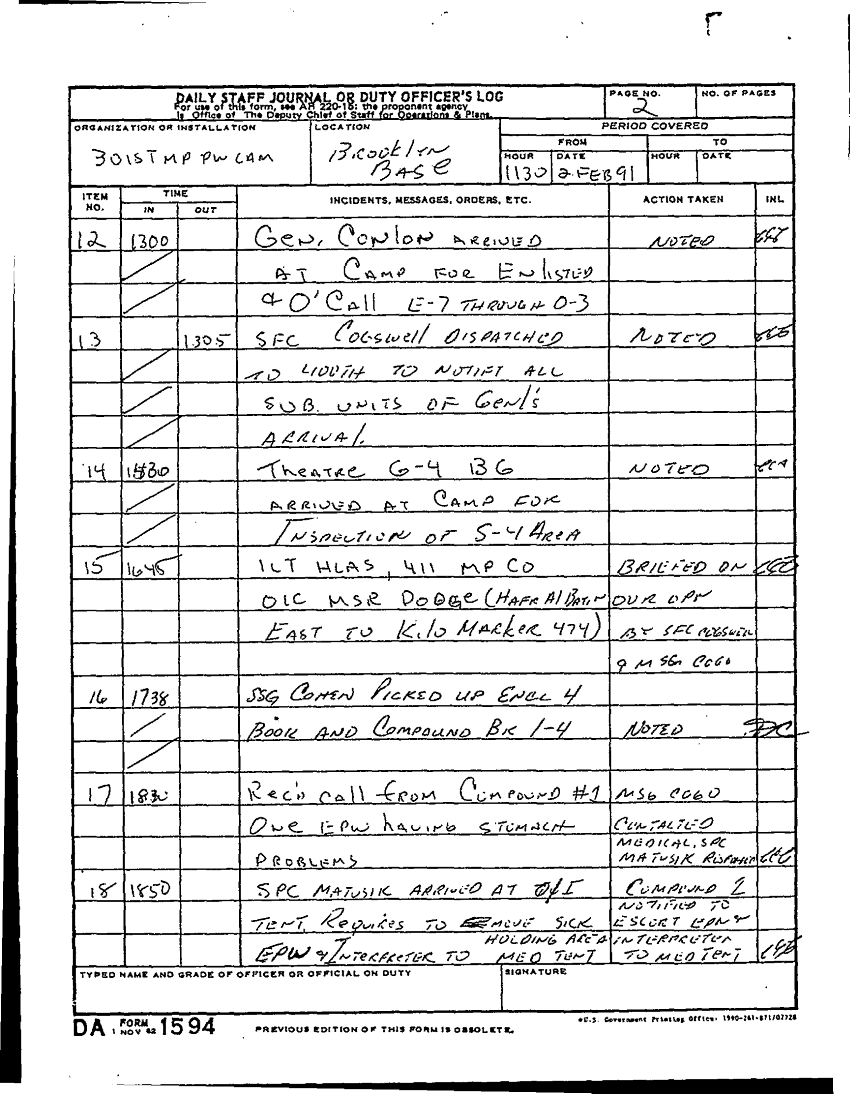 DAILY STAFF JOURNAL OR DUTY OFFICER'S LOG
For use of this form, see AR 220-15; the proponent agency
is Office of The Deputy Chief of Staff for Operations & Plans.
PAGE NO.
2
NO. OF PAGES
ORGANIZATION OR INSTALLATION
301ST MP PW CAM
LOCATION
Brooklyn
BASE
PERIOD COVERED
FROM
TO
HOUR
DATE
HOUR
DATE
1130
2 FEB 91
ITEM
NO.
TIME
IN
OUT
INCIDENTS, MESSAGES, ORDERS, ETC.
ACTION TAKEN
INL
12 1300 Gen. Conlon ARRIVED NOTED
AT CAMP FOR Enlisted
& O'Call E-7 THROUGH O-3
13 1305 SFC Cogswell DISPATCHED NOTED
TO NOTIFY ALL
SUB. UNITS OF Gen's
ARRIVAL.
14 Theatre G-4 BG NOTED
ARRIVED AT CAMP FOR
INSPECTION OF S-4 AREA
15 1645 1LT HLAS, 411 MP CO BRIEFED ON
OIC MSR DODGE (HAFR Al BATIN OUR OPN
EAST TO Kilo MARKER 474) BY SFC COGSWELL
& MSG COGO
16 1738 SSG COHEN PICKED UP ENCL 4
BOOK AND COMPOUND BK 1-4 NOTED
17 1830 Rec'd call from COMPOUND #1 MSG COGO
ONE EPW having STOMACH CONTACTED
PROBLEMS MEDICAL, SPC
MATUSIK RESPONDED
18 1850 SPC MATUSIK ARRIVED AT COMPOUND 2
TENT, Requires TO MOVE SICK NOTIFIED TO
ESCORT EPW &
EPW & INTERPRETER TO HOLDING AREA INTERPRETER
MED TENT TO MED TENT
TYPED NAME AND GRADE OF OFFICER OR OFFICIAL ON DUTY
SIGNATURE
DA FORM 1594
1 NOV 62
PREVIOUS EDITION OF THIS FORM IS OBSOLETE.
*U.S. Government Printing Office: 1990-261-871/07728